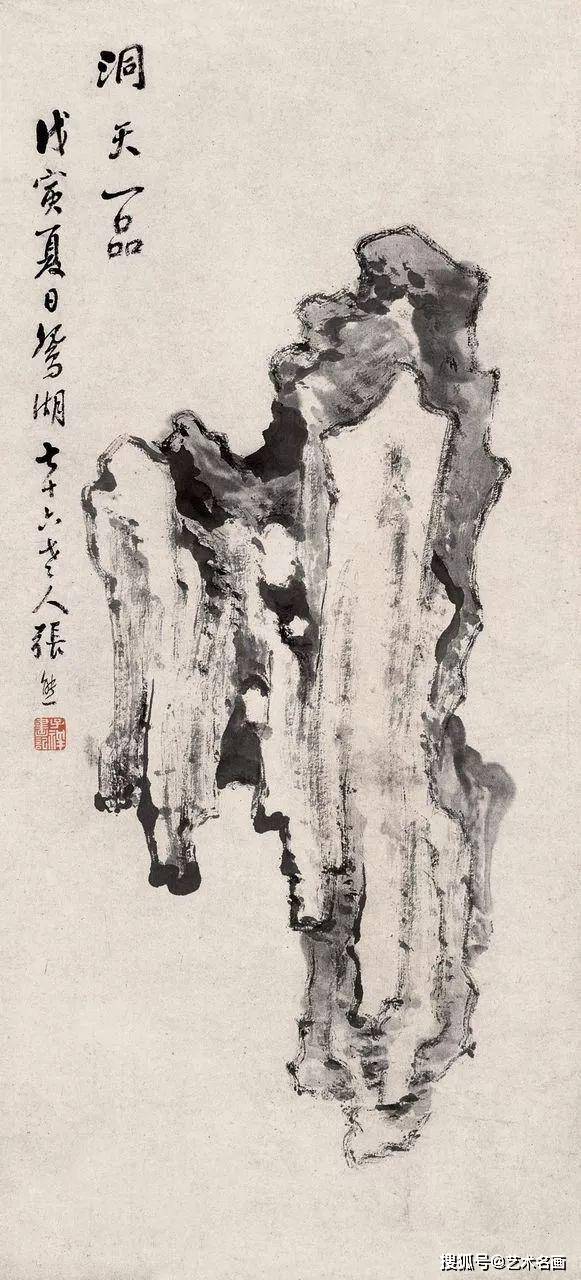 洞天一品
戊寅夏日鴛湖七十六老人張熊
子祥
搜狐号@艺术名画